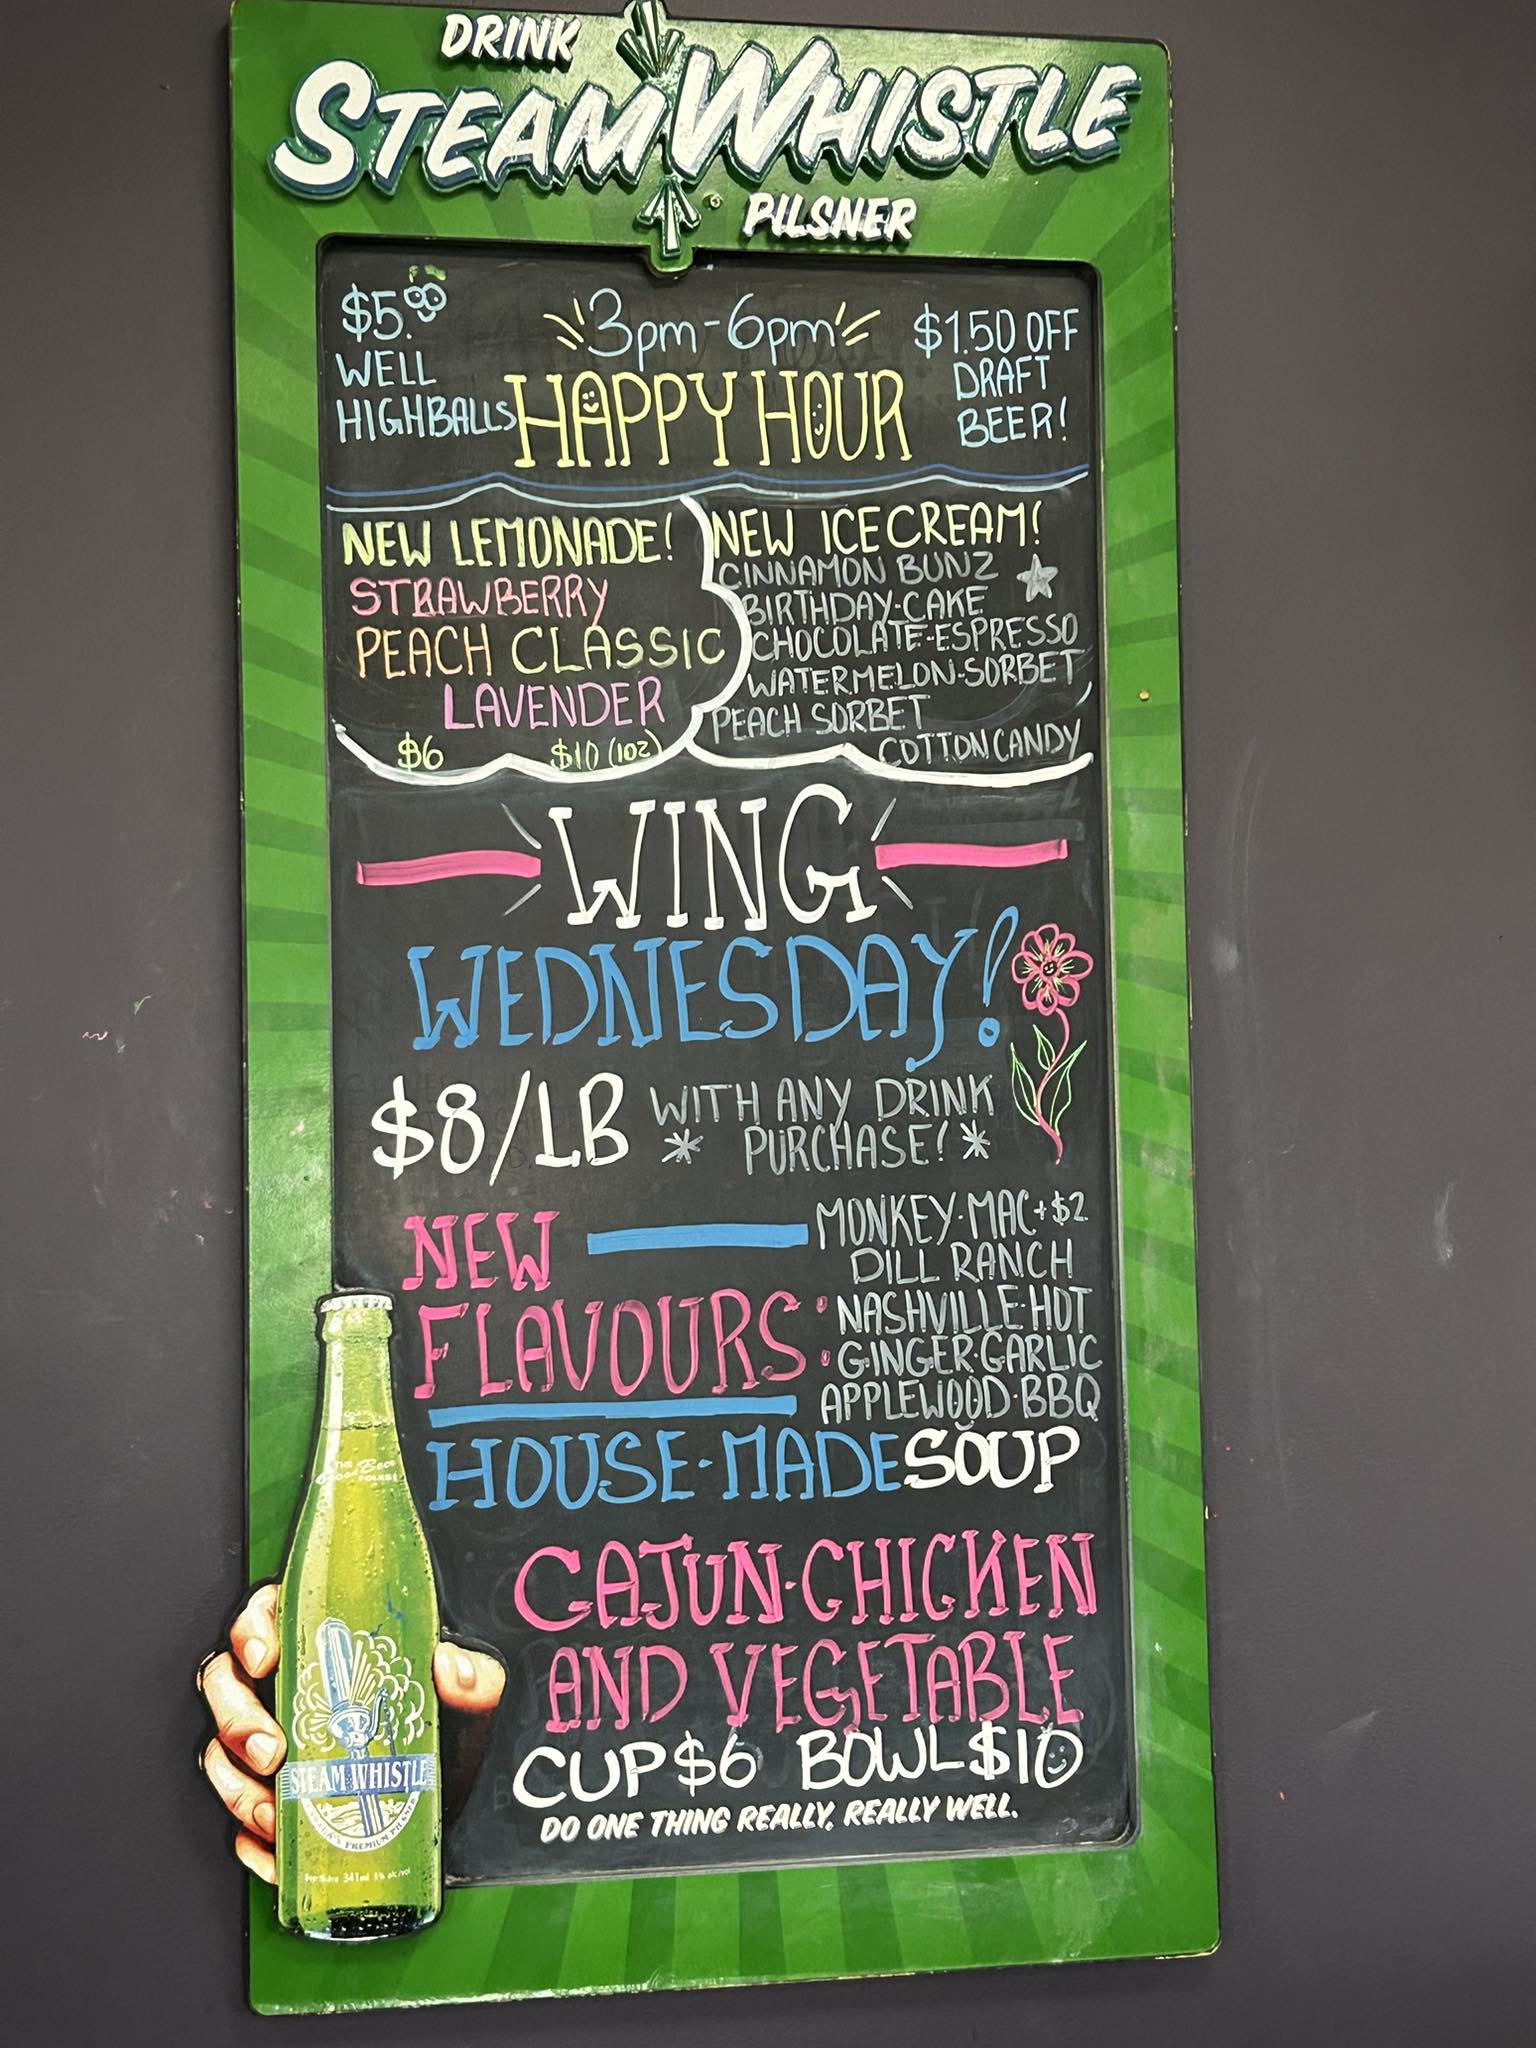 DRINK
STEAM WHISTLE
PILSNER
$5.00
WELL
HIGHBALLS
3pm-6pm
HAPPY HOUR
$1.50 OFF
DRAFT
BEER!
NEW LEMONADE!
STRAWBERRY
PEACH CLASSIC
LAVENDER
$6 $10 (1oz)
NEW ICE CREAM!
CINNAMON BUNZ
BIRTHDAY-CAKE
CHOCOLATE-ESPRESSO
WATERMELON-SORBET
PEACH SORBET
COTTON CANDY
WING
WEDNESDAY!
$8/LB
WITH ANY DRINK
* PURCHASE! *
NEW
FLAVOURS:
MONKEY·MAC+$2
DILL RANCH
NASHVILLE·HOT
GINGER·GARLIC
APPLEWOOD·BBQ
HOUSE·MADE SOUP
CAJUN·CHICKEN
AND VEGETABLE
CUP $6 BOWL $10
DO ONE THING REALLY, REALLY WELL.
THE
Good Beer
FOLKS!
STEAM WHISTLE
CANADA'S PREMIUM PILSNER
341ml 5% alc/vol